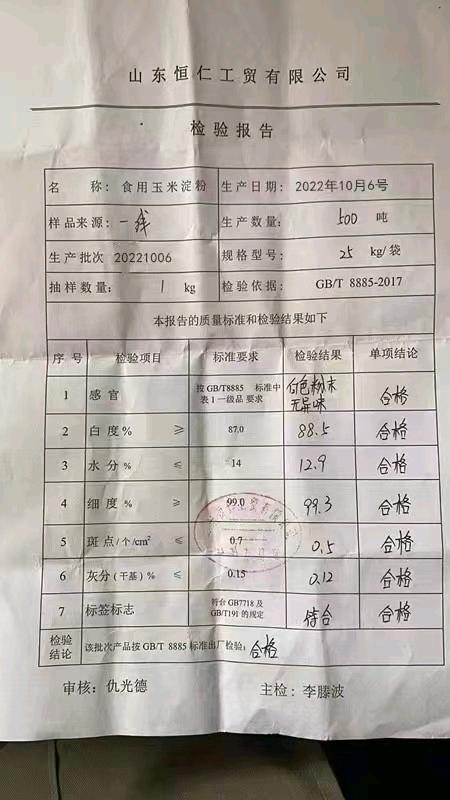 山东恒仁工贸有限公司
检验报告
名 称: 食用玉米淀粉 生产日期: 2022年10月6号
样品来源: 一线 生产数量: 500 吨
生产批次 20221006 规格型号: 25 kg/袋
抽样数量: 1 kg 检验依据: GB/T 8885-2017
本报告的质量标准和检验结果如下
序号 检验项目 标准要求 检验结果 单项结论
1 感官 按GB/T8885 标准中表1一级品 要求 白色粉末 无异味 合格
2 白度% ≥ 87.0 88.5 合格
3 水分% ≤ 14 12.9 合格
4 细度% ≥ 99.0 99.3 合格
5 斑点/个/cm² ≤ 0.7 0.5 合格
6 灰分(干基)% ≤ 0.15 0.12 合格
7 标签标志 符合GB7718及GB/T191的规定 符合 合格
检验结论 该批次产品按GB/T 8885标准出厂检验: 合格
审核: 仇光德 主检: 李滕波